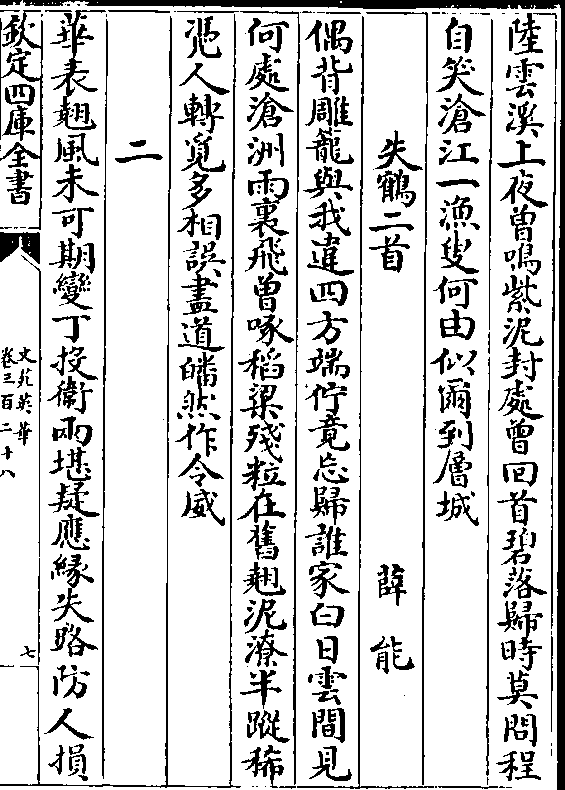 陸雲溪上夜曽鳴紫泥封處曽回首碧落歸時莫問程
自笑滄江一漁叟何由似爾到層城
失鶴二首　薛能
偶背雕籠與我違四方端佇竟忘歸誰家白日雲間見
何處滄洲雨裏飛曽啄稻粱殘粒在舊翹泥潦半蹤稀
凭人轉覓多相誤盡道皤然作令威
二
華表翹風未可期變丁投衛兩堪疑應縁失路防人損
欽定四庫全書
文苑英華
卷三百二十八
七